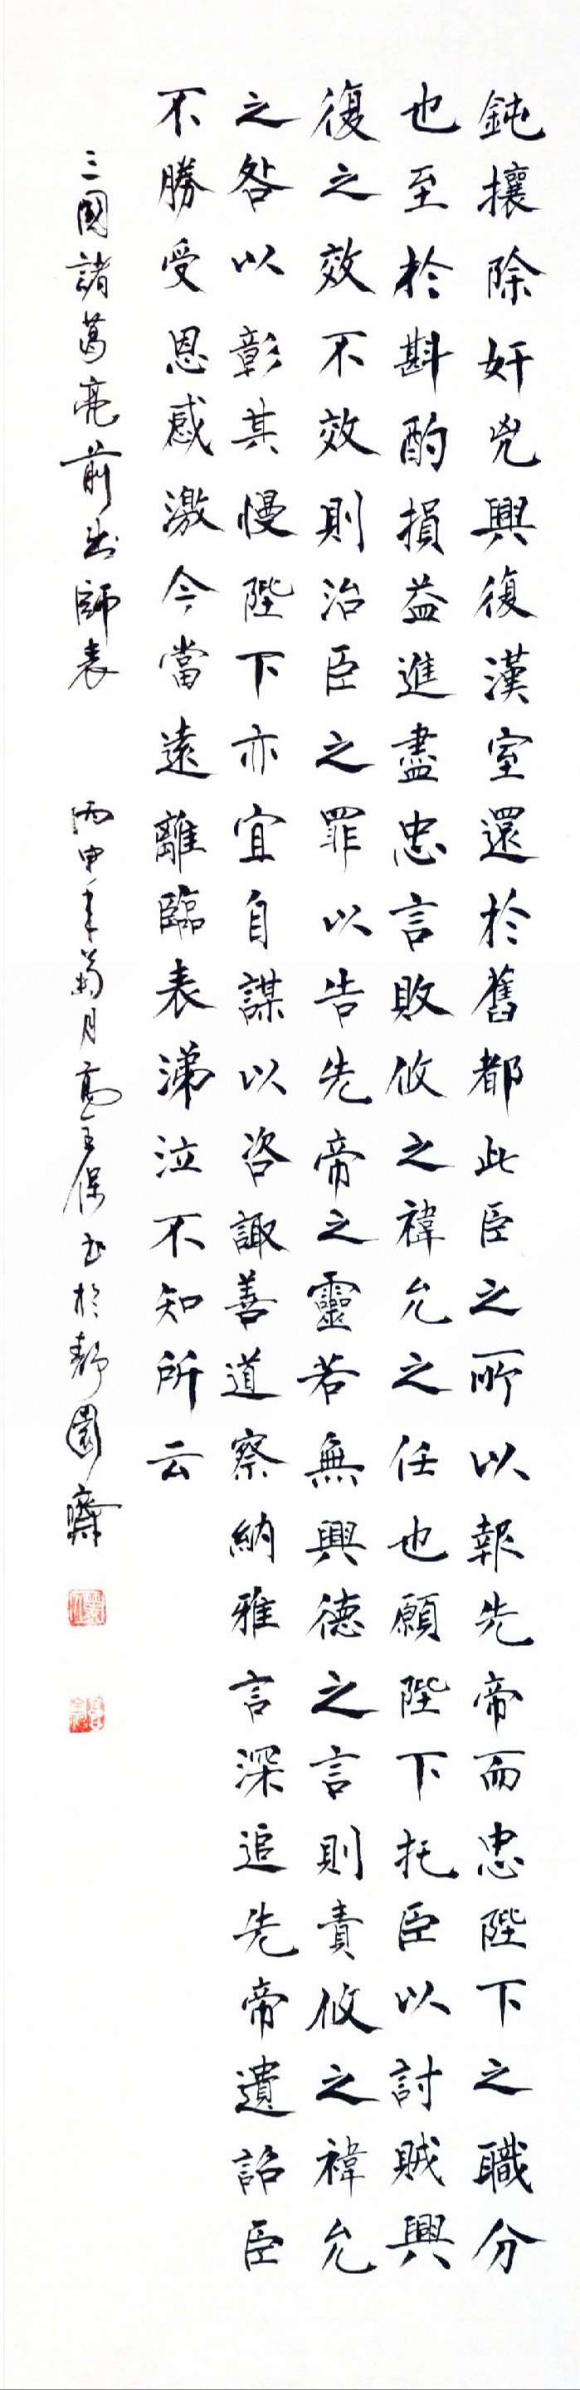 鈍攘除奸兇興復漢室還於舊都此臣之所以報先帝而忠陛下之職分
也至於斟酌損益進盡忠言敗攸之褘允之任也願陛下托臣以討賊興
復之效不效則治臣之罪以告先帝之靈若無興德之言則責攸之褘允
之咎以彰其慢陛下亦宜自謀以咨諏善道察納雅言深追先帝遺詔臣
不勝受恩感激今當遠離臨表涕泣不知所云
三國諸葛亮前出師表 丙申年菊月高金保書於靜園齋